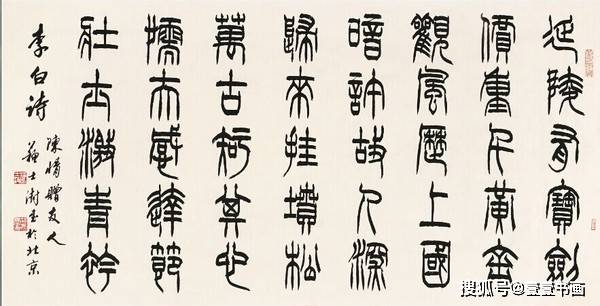 延陵有寶劍
價重千黃金
觀風歷上國
暗許故人深
歸來挂墳松
萬古知其心
懦夫感達節
壯士激青衿
李白诗
陳情贈友人
蘇士澍書於北京
搜狐号@壹壹书画